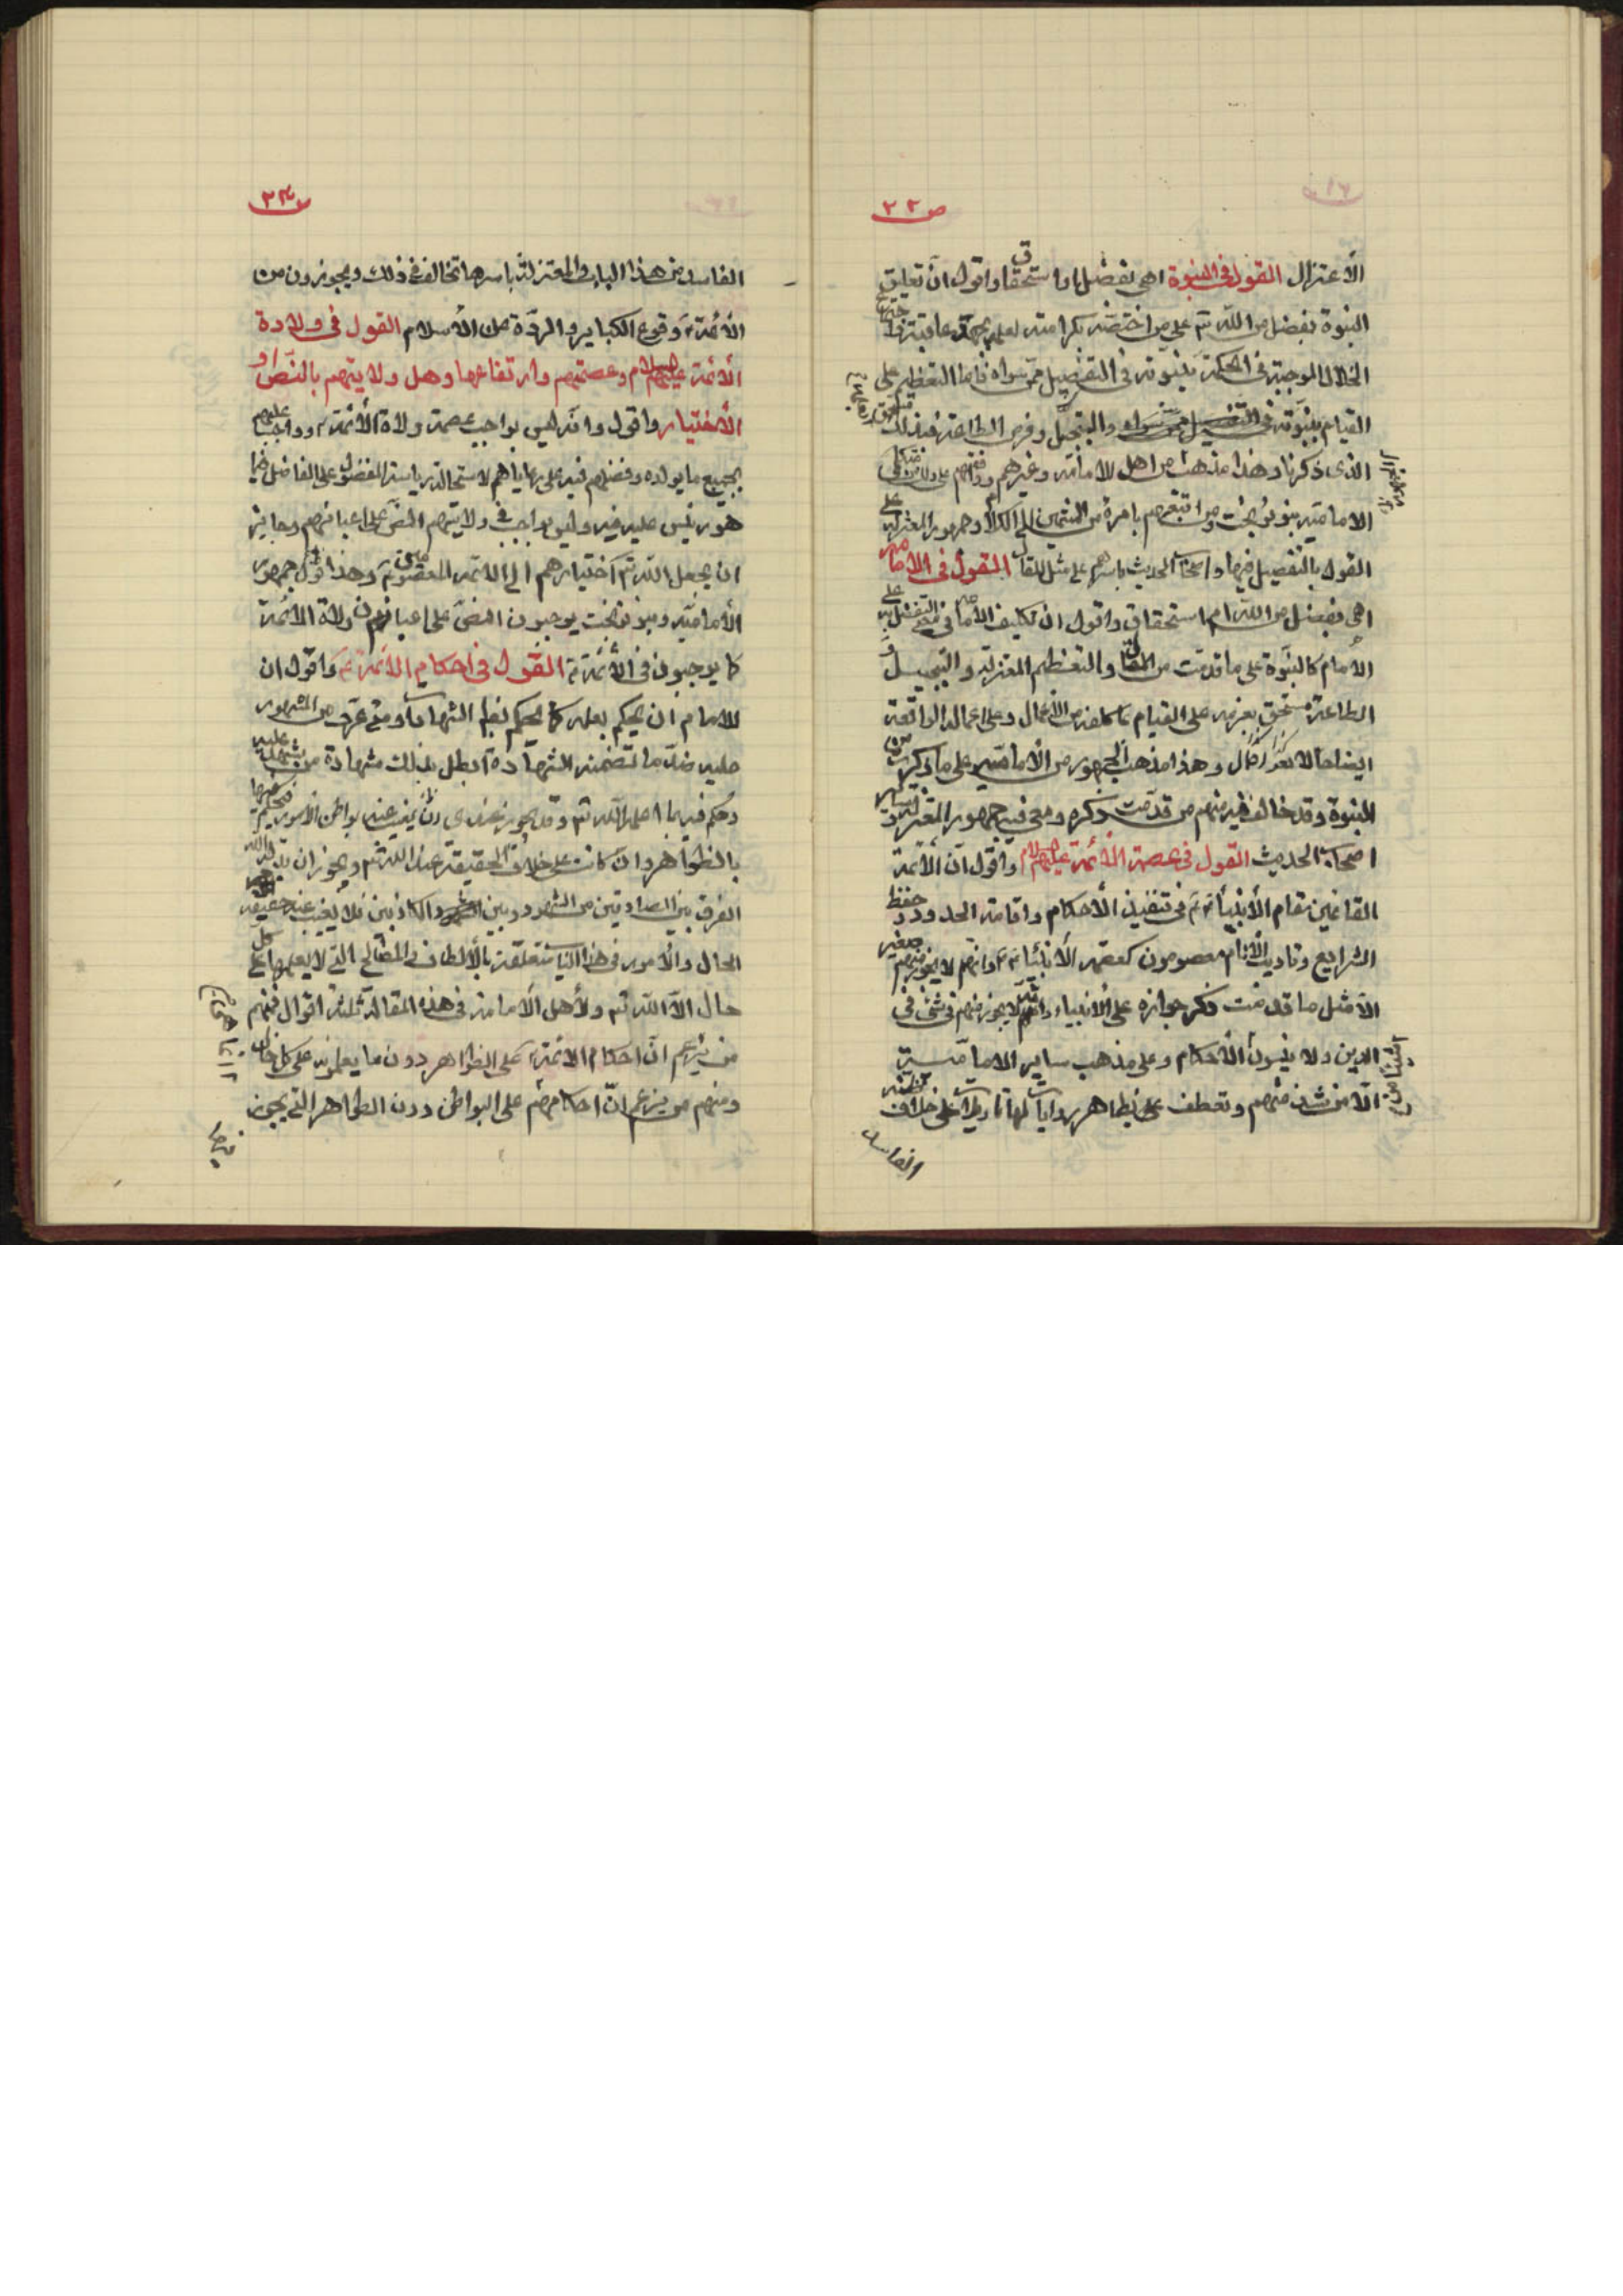 ص ٢٢
الأعتزال القول فى النبوة اهى تفضل او استحقاق واقول ان تعليق
النبوة تفضل من الله تع على من اختصه بكرامته لعلمه بحميد عاقبته واجتماع
الخلال الموجبة فى الحكمة بنبوته فى التفضيل على من سواه فاما التعظيم على
القيام بنبوته والتبجيل وفرض الطاعة فذلك مستحق
الذى ذكرنا وهذا مذهب من اهل الامامة وغيرهم ووافقهم على ذلك من متكلمى
الامامية بنو نوبخت ومن اتبعهم باسره من المنتمين الى الكلام وجمهور المعتزلة على
القول بالتفضل فيها واصحاب الحديث باسرهم على مثل المقال القول فى الامامة
اهى تفضل من الله ام استحقاق واقول ان تكليف الامامة فى معنى التفضل به على
الامام كالنبوة على ما قدمت من المقال والتعظيم المعتزلة والتبجيل و
الطاعة مستحق بعزمه على القيام بما كلفه من الاعمال وعلى اعماله الواقعة
ايضا حالا بعد حال وهذا مذهب الجمهور من الامامية على ما ذكرت فى
النبوة وقد خالف فيه منهم من قدمت ذكره ومعى فيه جمهور المعتزلة وساير
اصحاب الحديث القول فى عصمة الائمة عليهم السلام واقول ان الأئمة
القائمين مقام الأنبياء ع فى تنفيذ الأحكام واقامة الحدود وحفظ
الشرايع وتاديب الأنام معصومون كعصمة الأنبياء ع وانهم لا يجوز منهم صغيرة
الا مثل ما قدمت ذكر جوازه على الأنبياء وانه لا يجوز منهم سهو فى شئ فى
الدين ولا ينسون الأحكام وعلى مذهب ساير الامامية
الا من شذ منهم وتعلق على بظاهر روايات لها تاويلات على خلاف ظنه
الفاسد
ص ٢٣
الفاسد من هذا الباب والمعتزلة باسرها تخالف فى ذلك ويجوزون من
الأئمة ع وقوع الكباير والردة عن الأسلام القول فى ولادة
الأئمة عليهم السلام وعصمتهم وارتفاعها وهل ولايتهم بالنص او
الأختيار واقول وانه ليس بواجب عصمة ولاة الأئمة ع وواجب علمهم
بجميع ما يولوه وفضلهم فيه على رعاياهم لاستحالة رياسة المفضول على الفاضل فيما
هو رئيس عليه فيه وليس بواجب فى ولايتهم النص على اعيانهم وجايز
ان يجعل الله تع اختيارهم الى الائمة المعصومين ع وهذا قول جمهور
الأمامية وبنو نوبخت يوجبون النص على اعيان ولاة الأئمة
كما يوجبونه فى الأئمة ع القول فى احكام الأئمة ع واقول ان
للامام ان يحكم بعلمه كما يحكم بظاهر الشهادات ومتى عرف من المشهود
عليه ضد ما تضمنته الشهادة ابطل بذلك شهادة من شهد عليه
وحكم فيه بما اعلمه الله تع وقد يجوز عندى ان تغيب عنه بواطن الأمور فيحكم فيها
بالظواهر وان كانت على خلاف الحقيقة عند الله تع ويجوز ان يدله الله
الفرق بين الصادقين من الشهود وبين الكاذبين فلا يغيب عنه حقيقة
الحال والأمور فى هذا الباب متعلقة بالألطاف والمصالح التى لا يعلمها على كل
حال الا الله تع ولأهل الأمامة فى هذه المقالة ثلثة اقوال فمنهم
من يزعم ان احكام الأئمة ع على الظواهر دون ما يعلمونه على كل حال
ومنهم من يزعم ان احكامهم على البواطن دون الظواهر التى يجوز
فيها